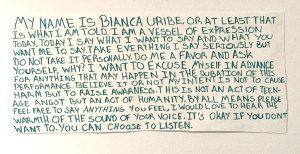 MY NAME IS BIANCA URIBE. OR AT LEAST THAT
IS WHAT I AM TOLD. I AM A VESSEL OF EXPRESSION
TODAY. TODAY I SAY WHAT I WANT TO SAY AND WHAT YOU
WANT ME TO SAY. TAKE EVERYTHING I SAY SERIOUSLY BUT
DO NOT TAKE IT PERSONALLY. DO ME A FAVOR AND ASK
YOURSELF WHY? I WANT TO EXCUSE MYSELF IN ADVANCE
FOR ANYTHING THAT MAY HAPPEN IN THE DURATION OF THIS
PERFORMANCE. BELIEVE IT OR NOT MY INTENT IS NOT TO CAUSE
HARM BUT TO RAISE AWARENESS. THIS IS NOT AN ACT OF TEEN-
AGE ANGST BUT AN ACT OF HUMANITY. BY ALL MEANS PLEASE
FEEL FREE TO SAY ANYTHING YOU FEEL, I WOULD LOVE TO HEAR THE
WARMTH OF THE SOUND OF YOUR VOICE. IT'S OKAY IF YOU DONT
WANT TO-YOU CAN CHOOSE TO LISTEN.